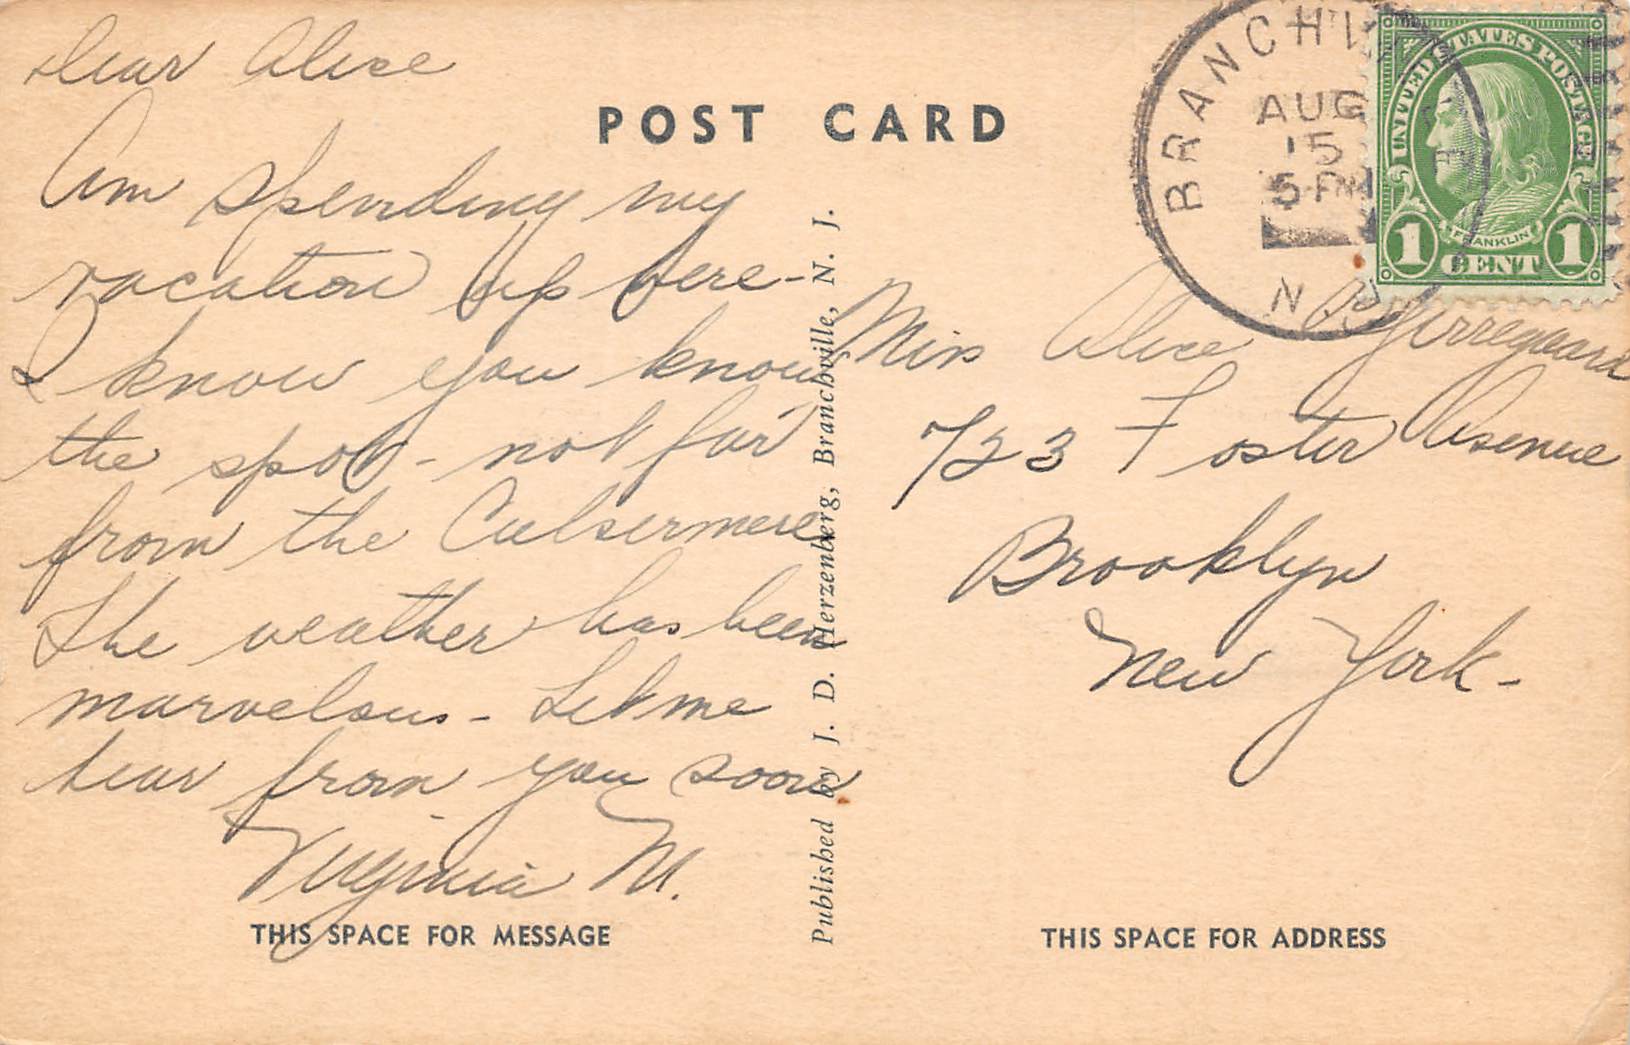 Dear Alice
Am spending my
vacation up here -
I know you know
the spot - not far
from the Culvermere
The weather has been
marvelous - Let me
hear from you soon
Virginia M.
THIS SPACE FOR MESSAGE
POST CARD
Published by J. D. Herzenberg, Branchville, N. J.
BRANCHV
AUG
15
5 PM
N. J.
UNITED STATES POSTAGE
FRANKLIN
1 CENT 1
Miss Alice
723 Foster Avenue
Brooklyn
New York -
THIS SPACE FOR ADDRESS